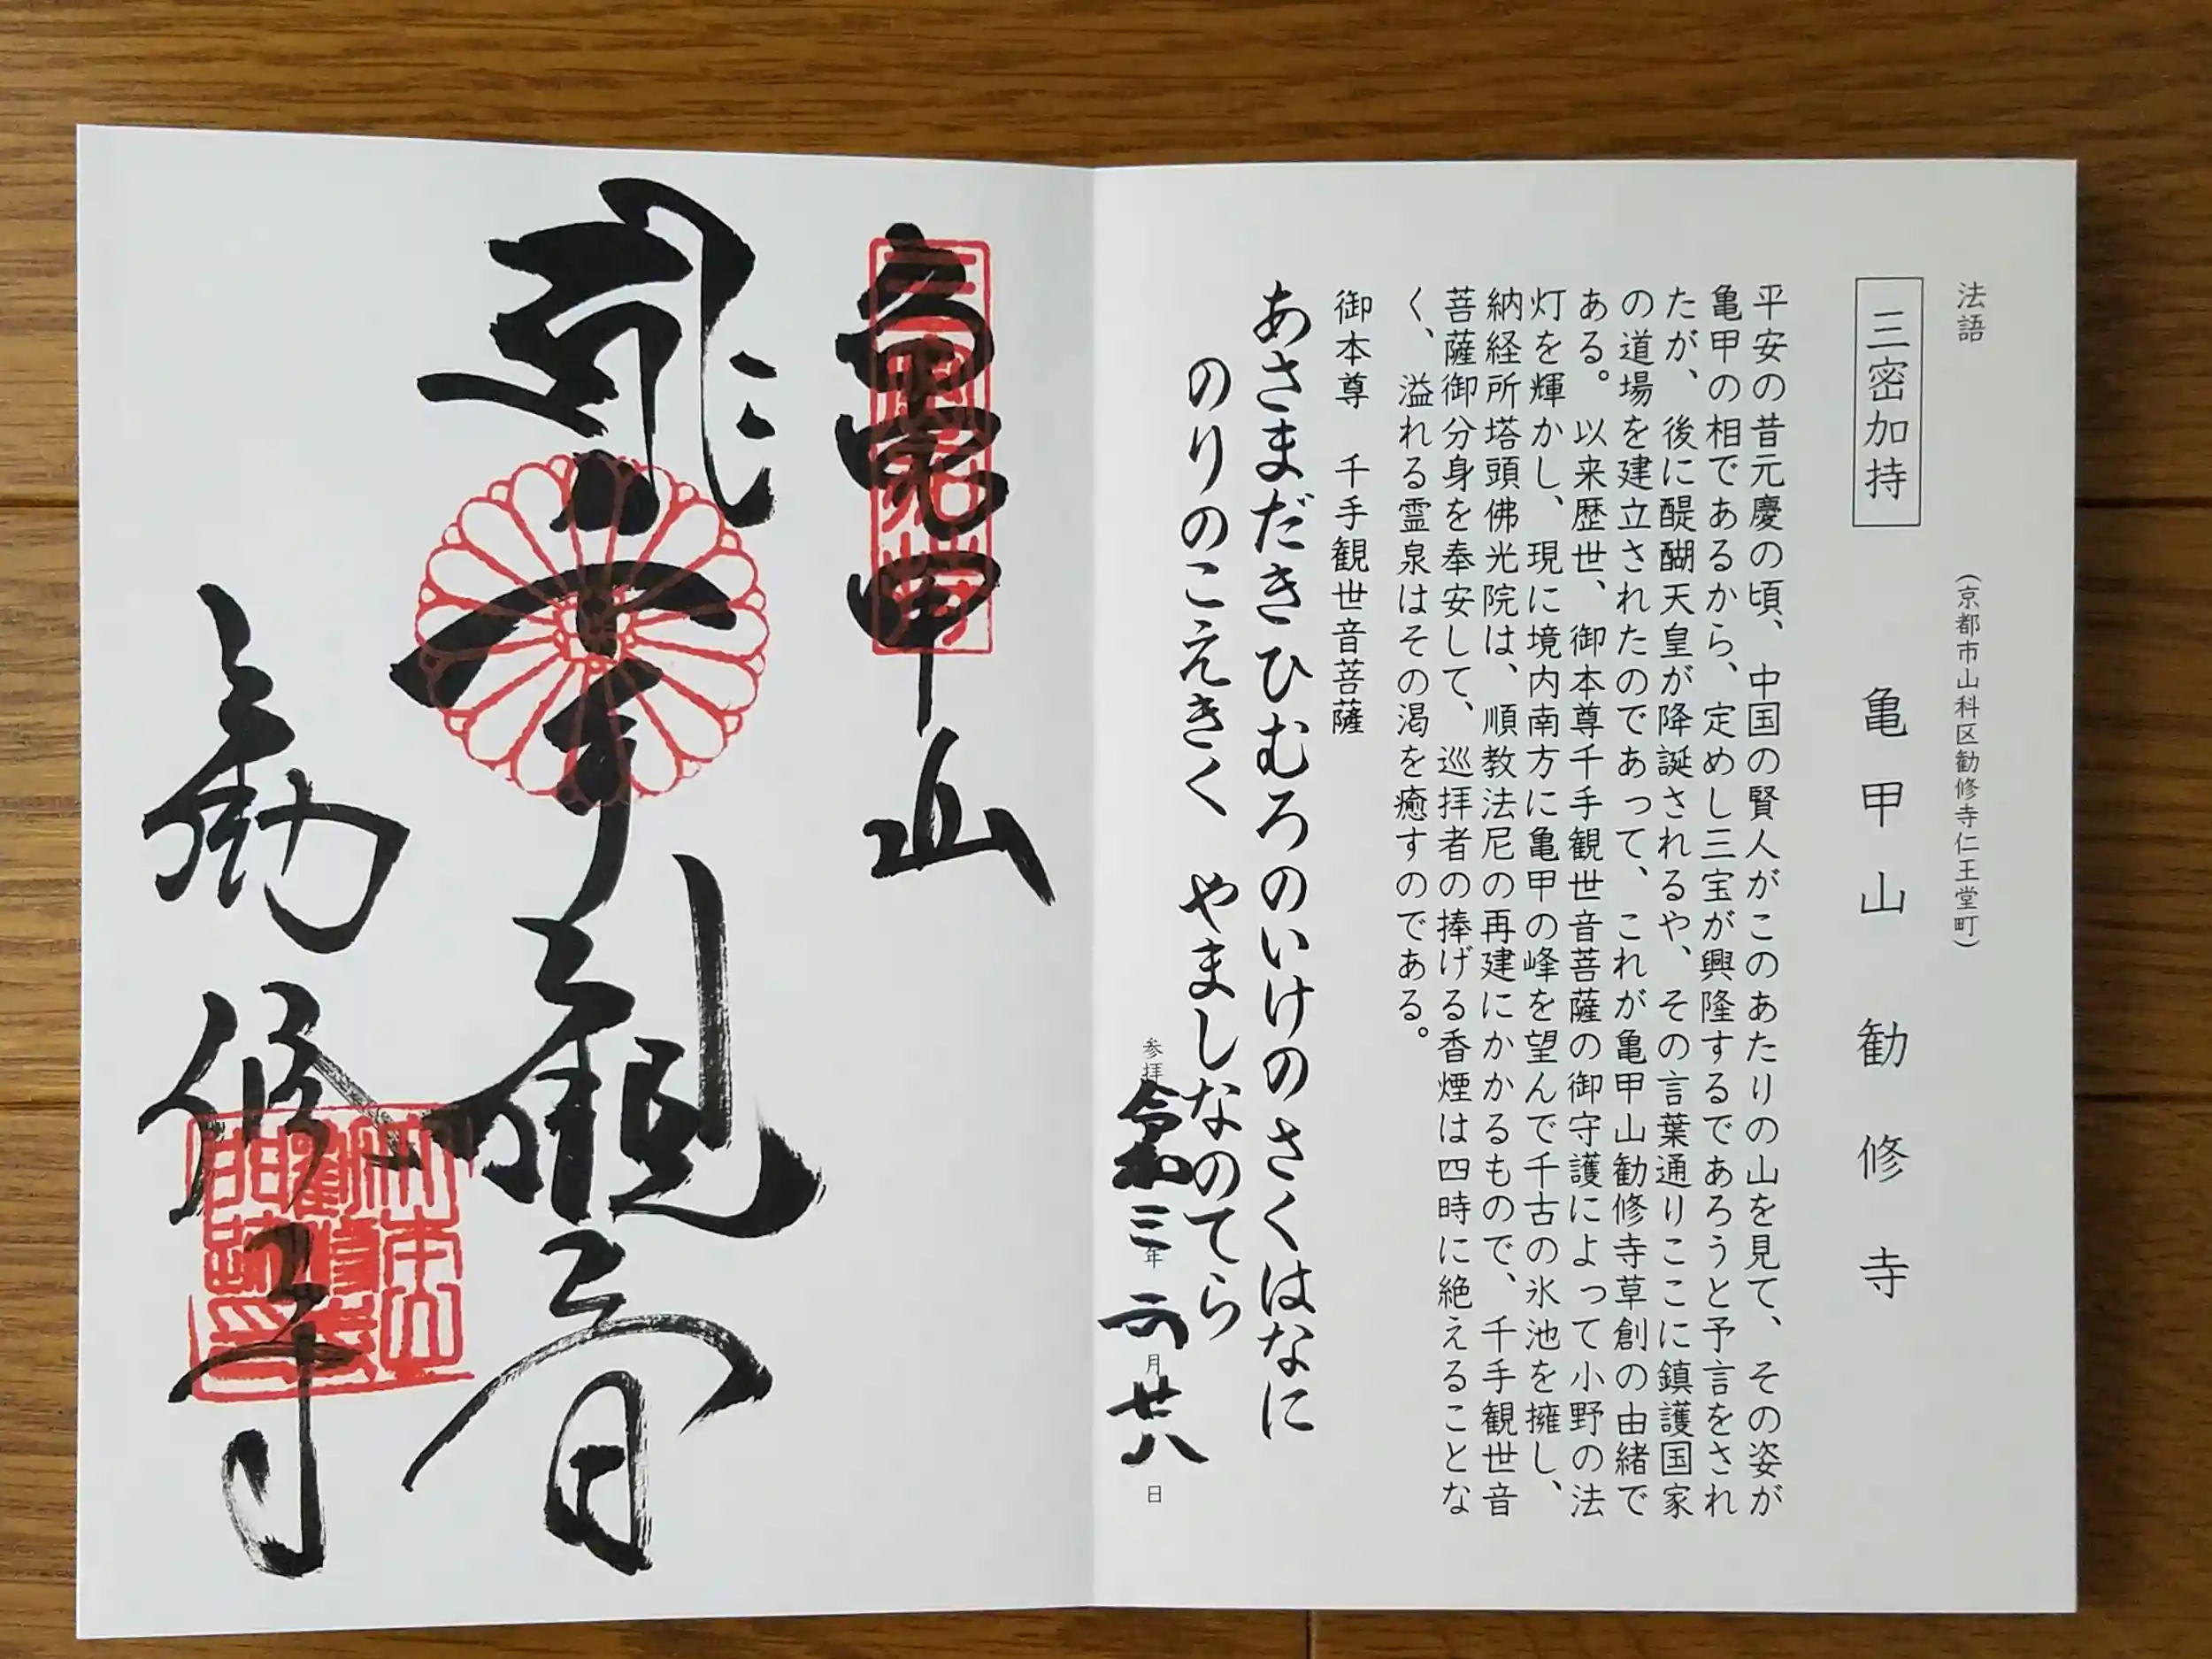 法語
(京都市山科区勧修寺仁王堂町)
三密加持
亀甲山 勧修寺
平安の昔元慶の頃、中国の賢人がこのあたりの山を見て、その姿が
亀甲の相であるから、定めし三宝が興隆するであろうと予言をされ
たが、後に醍醐天皇が降誕されるや、その言葉通りここに鎮護国家
の道場を建立されたのであって、これが亀甲山勧修寺草創の由緒で
ある。以来歴世、御本尊千手観世音菩薩の御守護によって小野の法
灯を輝かし、現に境内南方に亀甲の峰を望んで千古の氷池を擁し、
納経所塔頭佛光院は、順教法尼の再建にかかるもので、千手観世音
菩薩御分身を奉安して、巡拝者の捧げる香煙は四時に絶えることな
く、溢れる霊泉はその渇を癒すのである。
御本尊 千手観世音菩薩
あさまだきひむろのいけのさくはなに
のりのこえきく やましなのてら
参拝 令和三年 二月 廿八日
甲山
千手観音
勧修寺